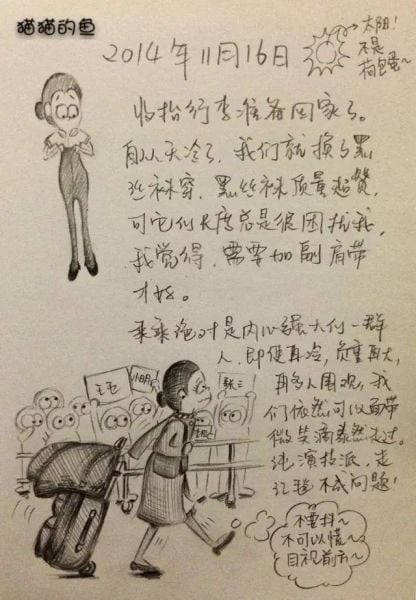 猫猫的鱼
2014年11月16日
太阳!
不是
荷包蛋~
收拾行李准备回家了。
自从天冷了，我们就换了黑
丝袜穿，黑丝袜质量超赞，
可它们长度总是很困扰我，
我觉得，需要加副肩带
才好。
乘乘绝对是内心强大们一群
人，即使再冷，负重再大，
再多人围观，我
们依然可以面带
微笑满泰然走过。
纯演技派，走
红毯不成问题!
王五
小明
张三
不要抖~
不可以慌~
目视前方~